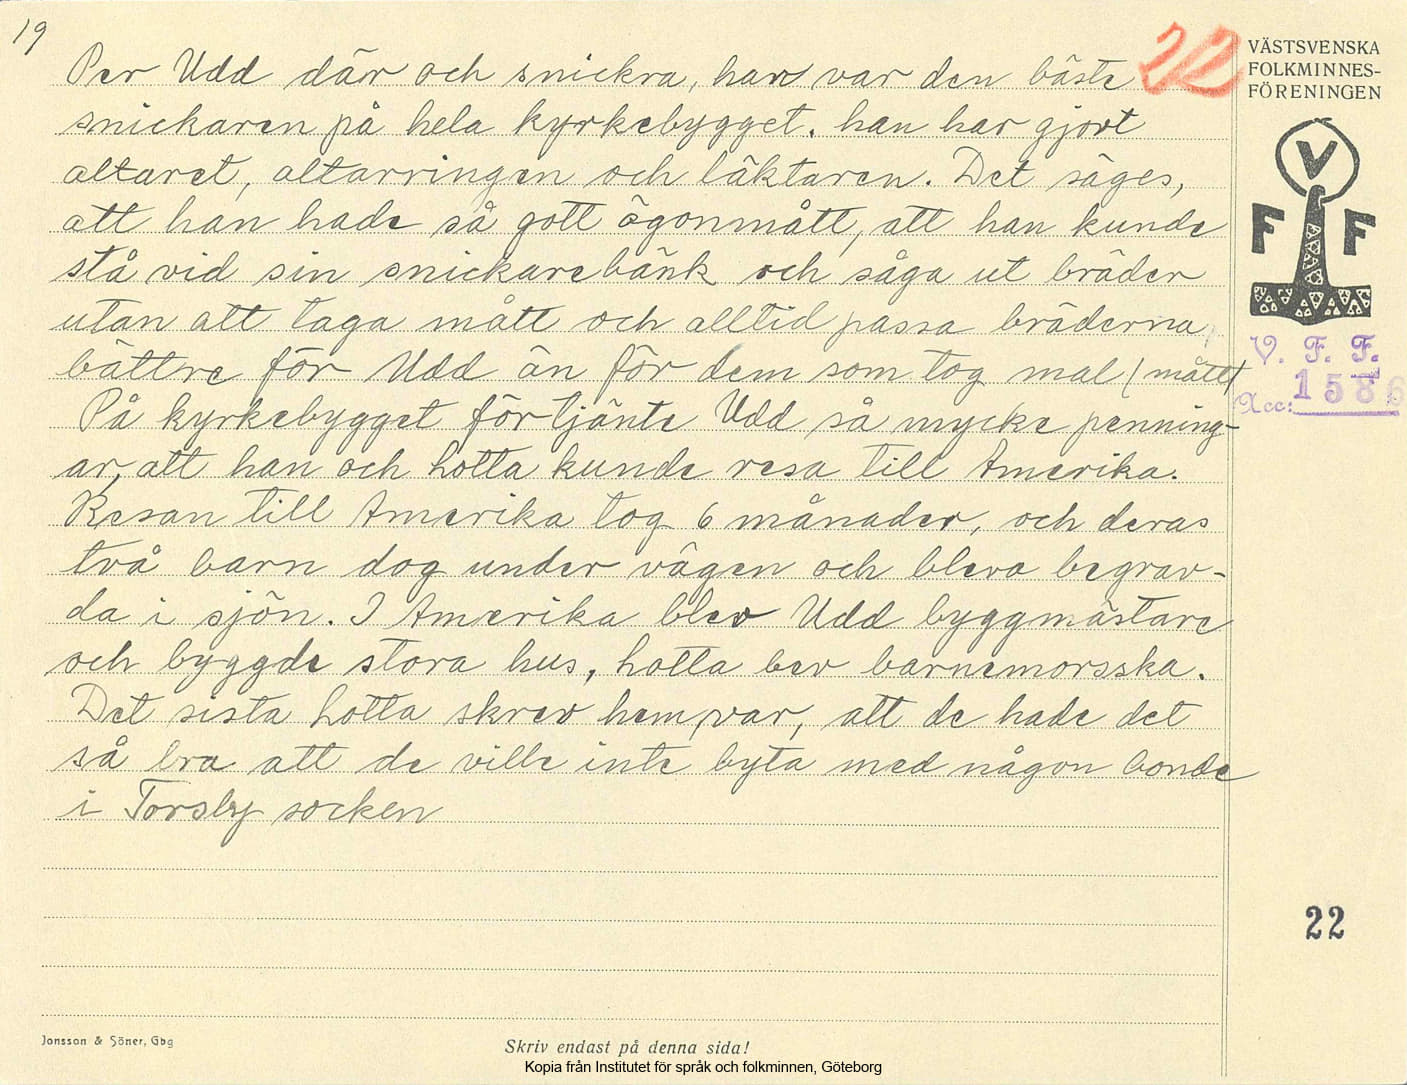 19
22
Per Udd där och snickra, han var den bäste
snickaren på hela kyrkebygget. han har gjort
altaret, altarringen och läktaren. Det säges,
att han hade så gott ögonmått, att han kunde
stå vid sin snickarebänk och såga ut bräder
utan att taga mått och alltid passa bräderna
bättre för Udd än för dem som tog mal (mått)
På kyrkebygget förtjänte Udd så mycke penning-
ar, att han och Lotta kunde resa till Amerika.
Resan till Amerika tog 6 månader, och deras
två barn dog under vägen och bleva begrav-
da i sjön. I Amerika blev Udd byggmästare
och byggde stora hus, Lotta bev barnemorsska.
Det sista Lotta skrev hem, var, att de hade det
så bra att de ville inte byta med någon bonde
i Torsby socken
VÄSTSVENSKA
FOLKMINNES-
FÖRENINGEN
V
F F
V. F. F.
Acc: 1586
22
Jonsson & Söner, Gbg
Skriv endast på denna sida!
Kopia från Institutet för språk och folkminnen, Göteborg